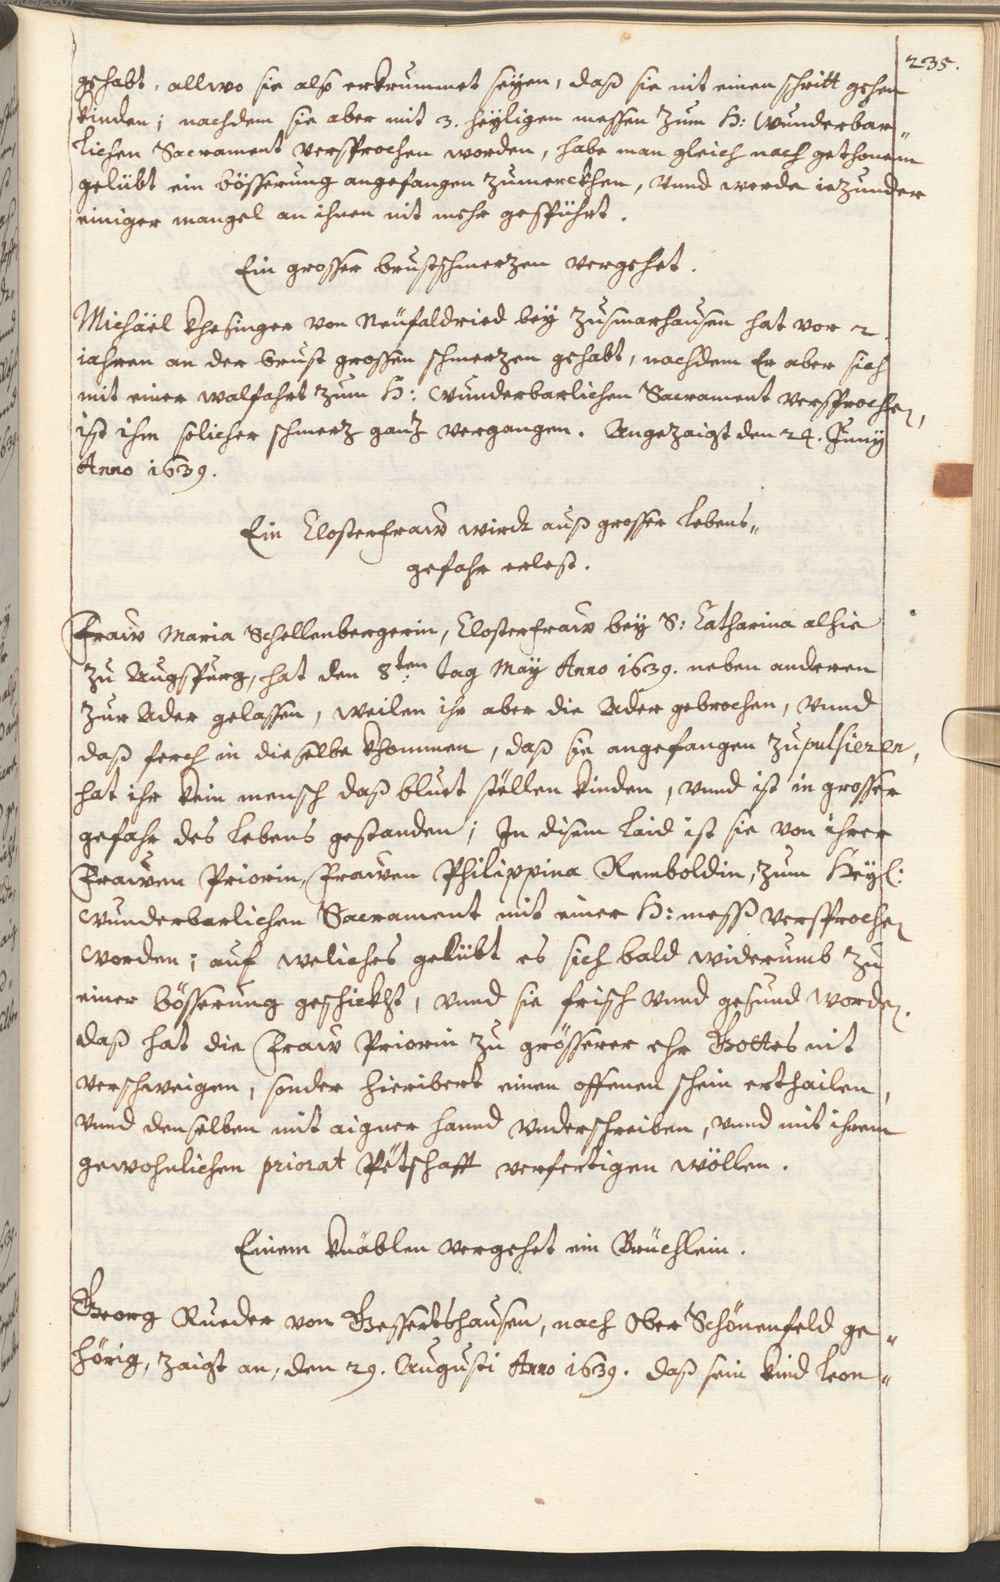 235.
gehabt, allwo sie also erkrummet seyen, daß sie nit einen schritt gehen
kinden; nachdem sie aber mit 3. heyligen messen zum H: Wunderbar„
lichen Sacrament versprochen worden, habe man gleich nach gethonem
gelübt ein bösserung angefangen zumerckhen, vnnd werde iezunder
einiger mangel an ihnen nit mehr gespührt.
Ein grosser brustschmerzen vergehet.
Michäel Khesinger von Neüfaldried bey Zusmarhausen hat vor 2
iahren an der brust grossen schmerzen gehabt, nachdem Er aber sich
mit einer walfahrt zum H: wunderbarlichen Sacrament versprochen,
ist ihm solicher schmerz ganz vergangen. Angezaigt den 24. Junij
Anno 1639.
Ein Closterfraw wirdt auß grosser Lebens„
gefahr erlest.
Fraw Maria Schellenbergerin, Closterfraw bey S: Catharina alhie
zu Augspurg, hat den 8ten tag Maÿ Anno 1639. neben anderen
zur Ader gelassen, weilen ihr aber die Ader gebrochen, vnnd
daß ferch in dieselbe khommen, daß sie angefangen zu pulsieren,
hat ihr kein mensch daß bluet stöllen kinden, vnnd ist in grosser
gefahr des Lebens gestanden; In disem laid ist sie von ihrer
Frawen Priorin, Frawen Philippina Remboldin, zum Heÿl:
wunderbarlichen Sacrament mit einer H: mess versprochen
worden; auf weliches gelübt es sich bald widerumb zu
einer bösserung geschickht, vnnd sie frisch vnnd gesund worden.
daß hat die Fraw Priorin zu grösserer ehr Gottes nit
verschweigen, sonder hieribert einen offenen schein erthailen,
vnnd denselben mit aigner hannd vnderschreiben, vnnd mit ihrem
gewohnlichen priorat Petschafft verfertigen wöllen.
Einem Knäblen vergehet ein Brüchlein.
Georg Rueder von Gessertshausen, nach Ober Schönenfeld ge„
hörig, zaigt an, den 29. Augusti Anno 1639. daß sein kind Leon„